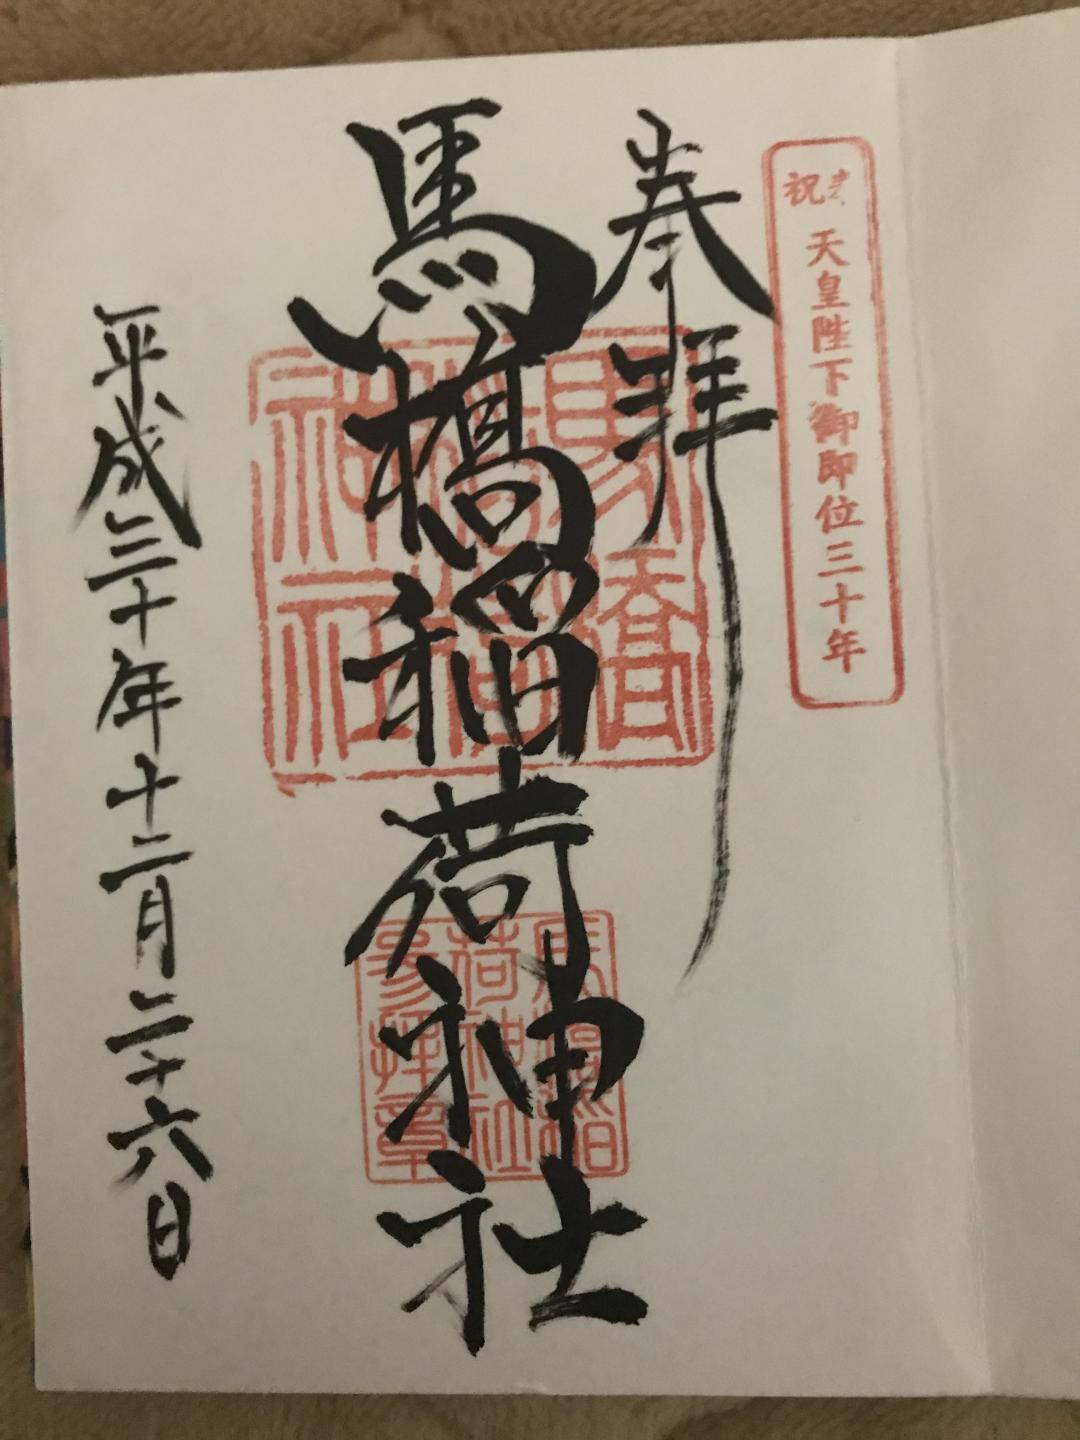 奉祝
天皇陛下御即位三十年
奉拝
馬橋稲荷神社
平成三十年十二月二十六日
馬橋
稲荷
神社
馬橋稲
荷神社
参拝章